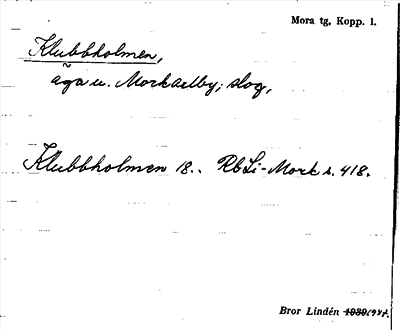 Mora tg, Kopp. l.
Klubbholmen,
äga u. Morkarlby; skog,
Klubbholmen 18.. RbLi-Mork s. 418.
Bror Lindén 1939.